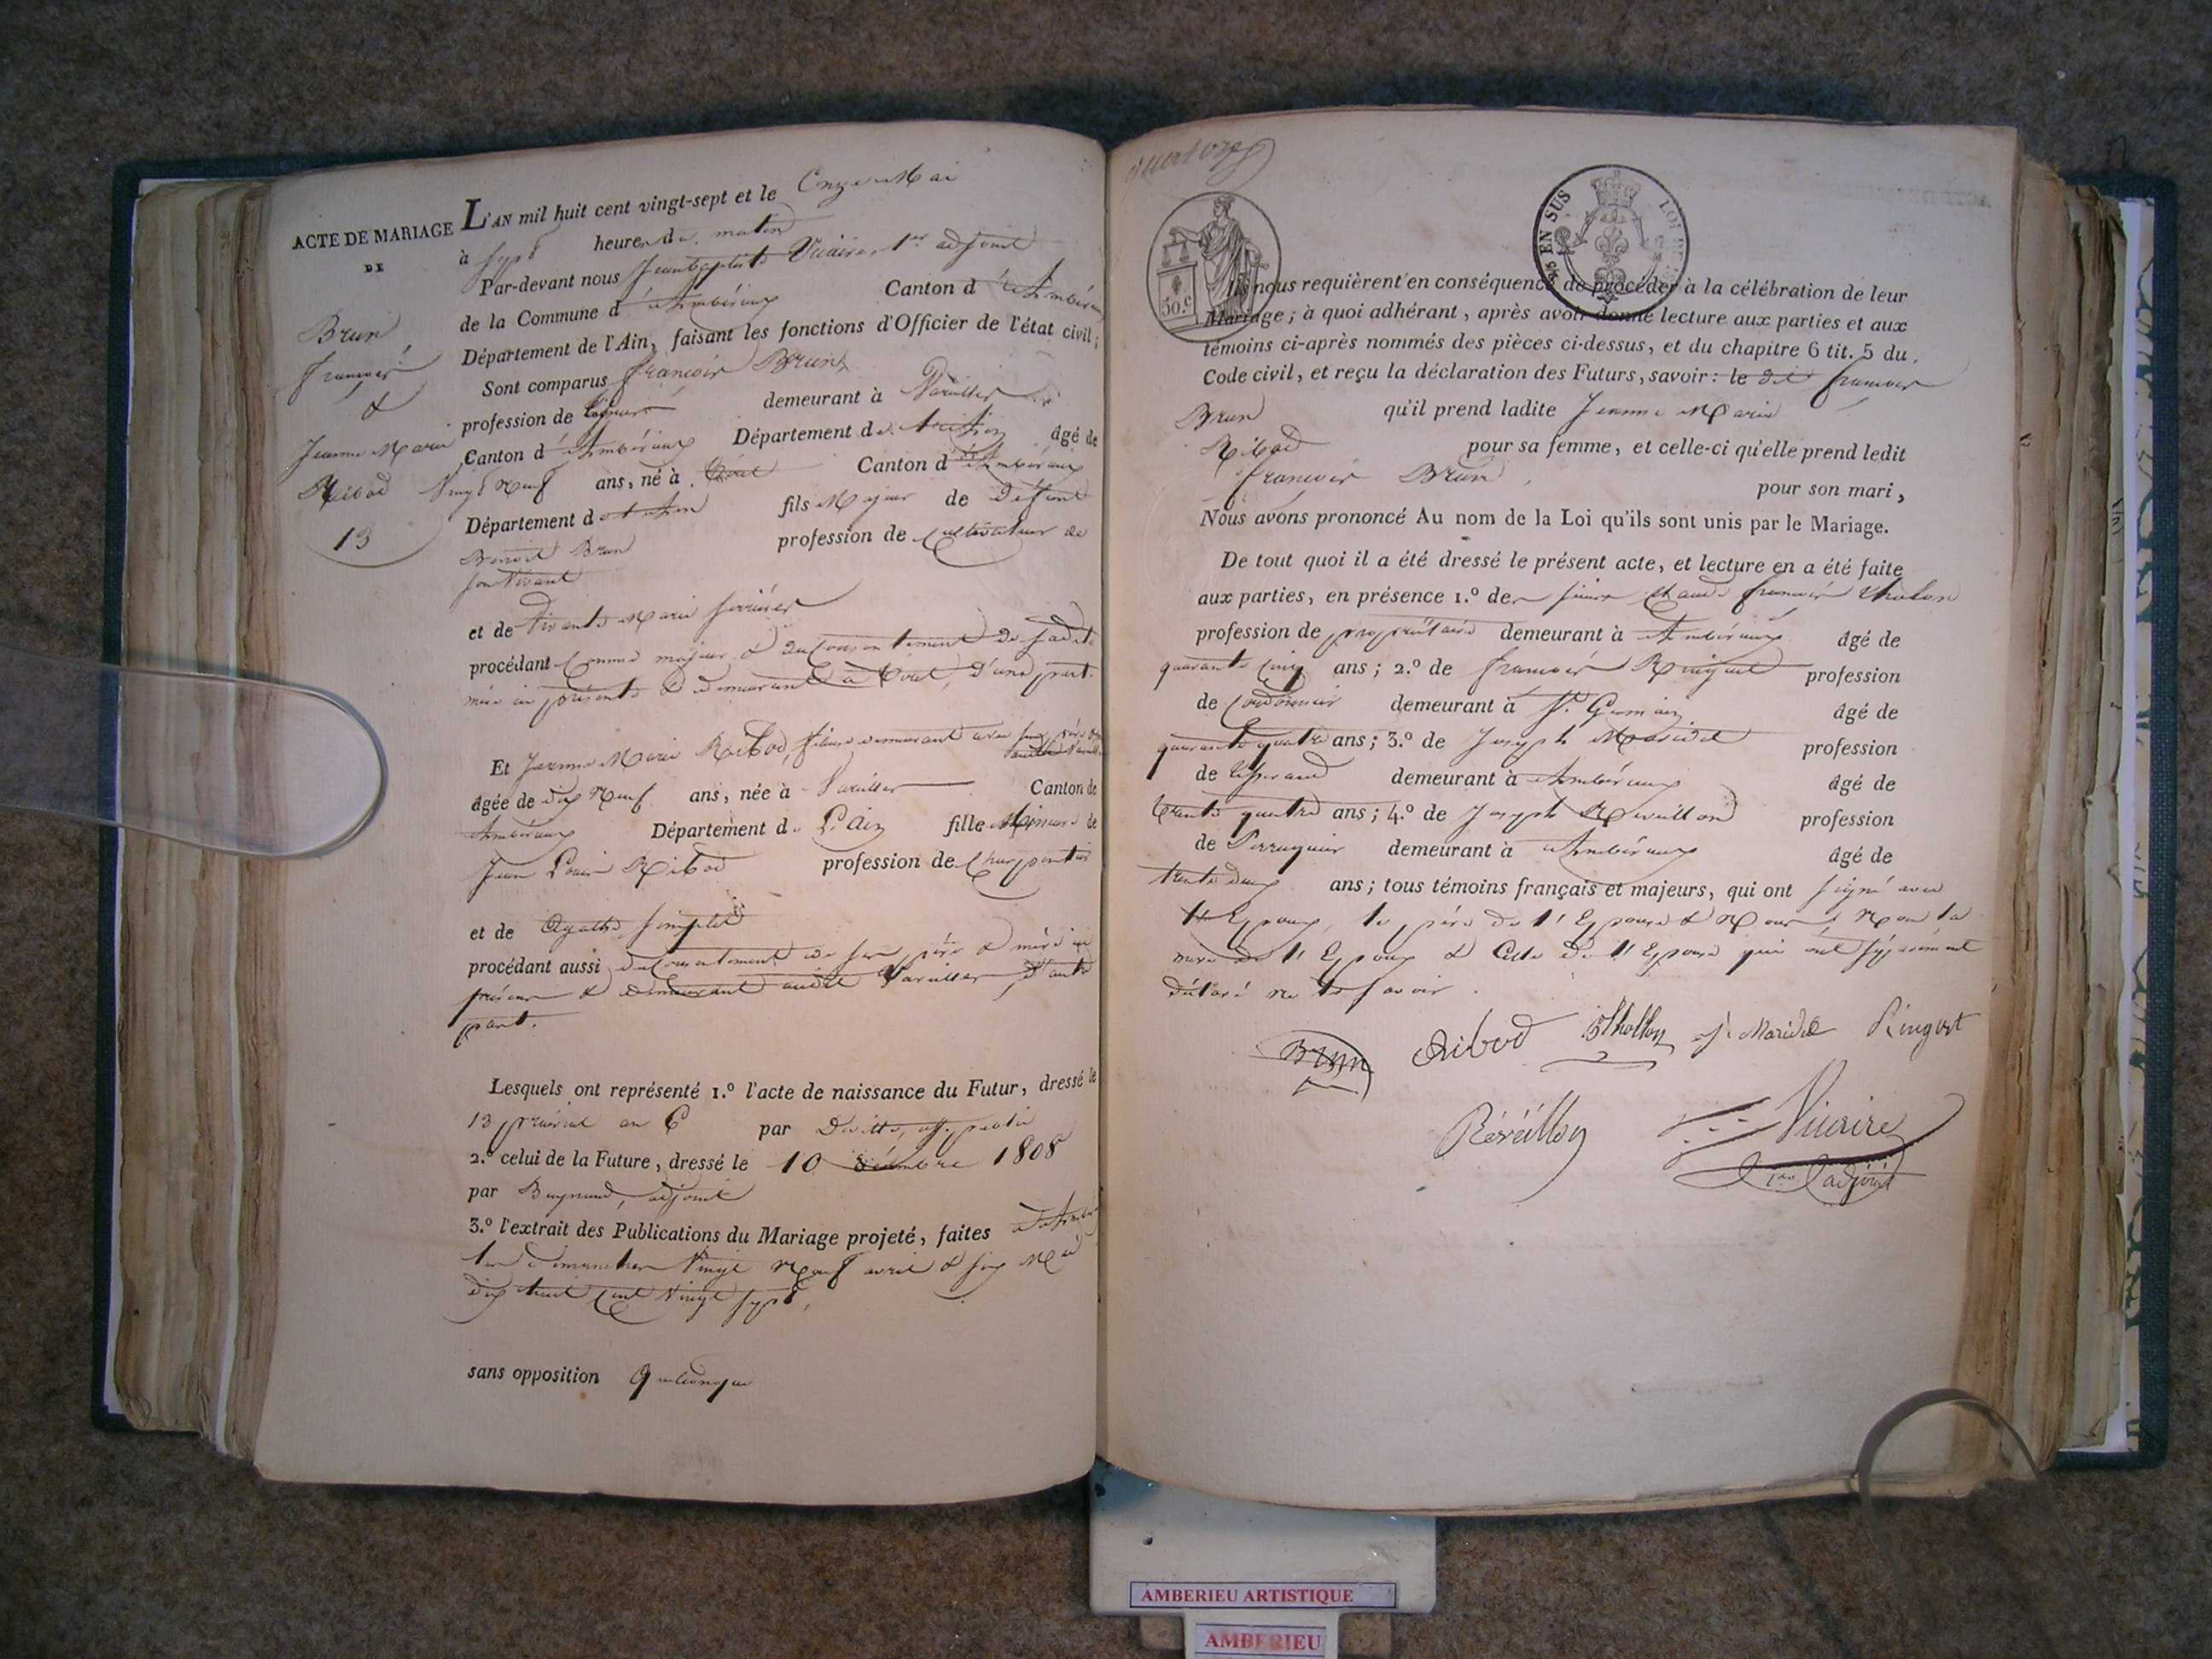 ACTE DE MARIAGE
DE
Brun
françois
&
Jeanne Marie
Ribod
13
L'AN mil huit cent vingt-sept et le Onze Mai
à sept heures du matin
Par-devant nous Jean baptiste Vicaire, 1er adjoint
de la Commune d'Ambérieux Canton d'Ambérieux
Département de l'Ain, faisant les fonctions d'Officier de l'état civil;
Sont comparus françois Brun
profession de demeurant à Vareilles
Canton d'Ambérieux Département de l'Ain âgé de
Vingt neuf ans, né à Canton d'Ambérieux
Département de l'Ain fils Majeur de Défunt
Benoit Brun profession de Cultivateur de
son Vivant
et de Vivante Marie
procédant Comme majeur & du Consentement de sa dite
mère ici présente & demeurant à d'une part.
Et Jeanne Marie Ribod, demeurant avec ses père &
âgée de dix Neuf ans, née à Vareilles Canton de
Ambérieux Département de L'Ain fille Mineure de
Jean Louis Ribod profession de Charpentier
et de Agathe
procédant aussi du Consentement de ses père & mère ici
présens & demeurant audit Vareilles, d'autre
part.
Lesquels ont représenté 1.º l'acte de naissance du Futur, dressé le
13 prairial an 6 par off. public
2.º celui de la Future, dressé le 10 décembre 1808
par adjoint
3.º l'extrait des Publications du Mariage projeté, faites
les dimanches Vingt Neuf avril & six Mai
dix huit Cent Vingt sept,
sans opposition Quelconque
quatorze
EN SUS
LOI
50.c
Ils nous requièrent en conséquence de procéder à la célébration de leur
Mariage; à quoi adhérant, après avoir donné lecture aux parties et aux
témoins ci-après nommés des pièces ci-dessus, et du chapitre 6 tit. 5 du
Code civil, et reçu la déclaration des Futurs, savoir: le dit françois
Brun qu'il prend ladite Jeanne Marie
Ribod pour sa femme, et celle-ci qu'elle prend ledit
françois Brun pour son mari,
Nous avons prononcé Au nom de la Loi qu'ils sont unis par le Mariage.
De tout quoi il a été dressé le présent acte, et lecture en a été faite
aux parties, en présence 1.º de françois
profession de propriétaire demeurant à Ambérieux âgé de
quarante cinq ans; 2.º de françois Ringuet profession
de Cordonnier demeurant à St. Germain âgé de
quarante quatre ans; 3.º de Joseph profession
de Tisserand demeurant à Ambérieux âgé de
trente quatre ans; 4.º de Joseph Reveillon profession
de Perruquier demeurant à Ambérieux âgé de
trente deux ans; tous témoins français et majeurs, qui ont signé avec
l'Epoux, le père de l'Epouse & Nous, & Non la
mere de l'Epoux & Celle de l'Epouse qui ont séparément
déclaré ne le savoir.
Brun Ribod Ringuet
Réveillon Vicaire
1er adjoint
AMBERIEU ARTISTIQUE
AMBERIEU